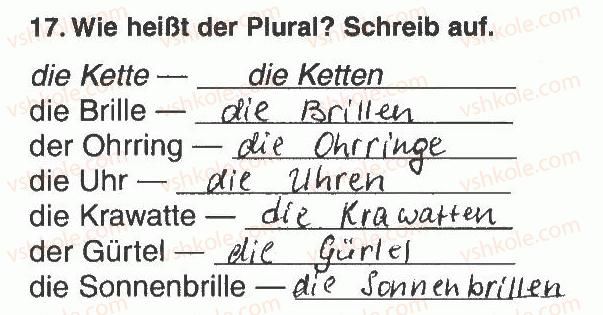 17. Wie heißt der Plural? Schreib auf.
die Kette — die Ketten
die Brille — die Brillen
der Ohrring — die Ohrringe
die Uhr — die Uhren
die Krawatte — die Krawatten
der Gürtel — die Gürtel
die Sonnenbrille — die Sonnenbrillen